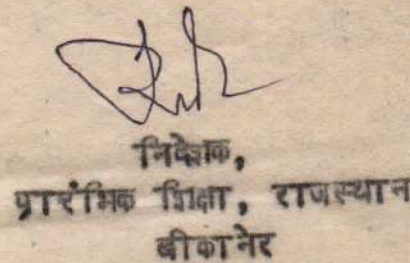 निदेशक,
प्रारंभिक शिक्षा, राजस्थान
बीकानेर